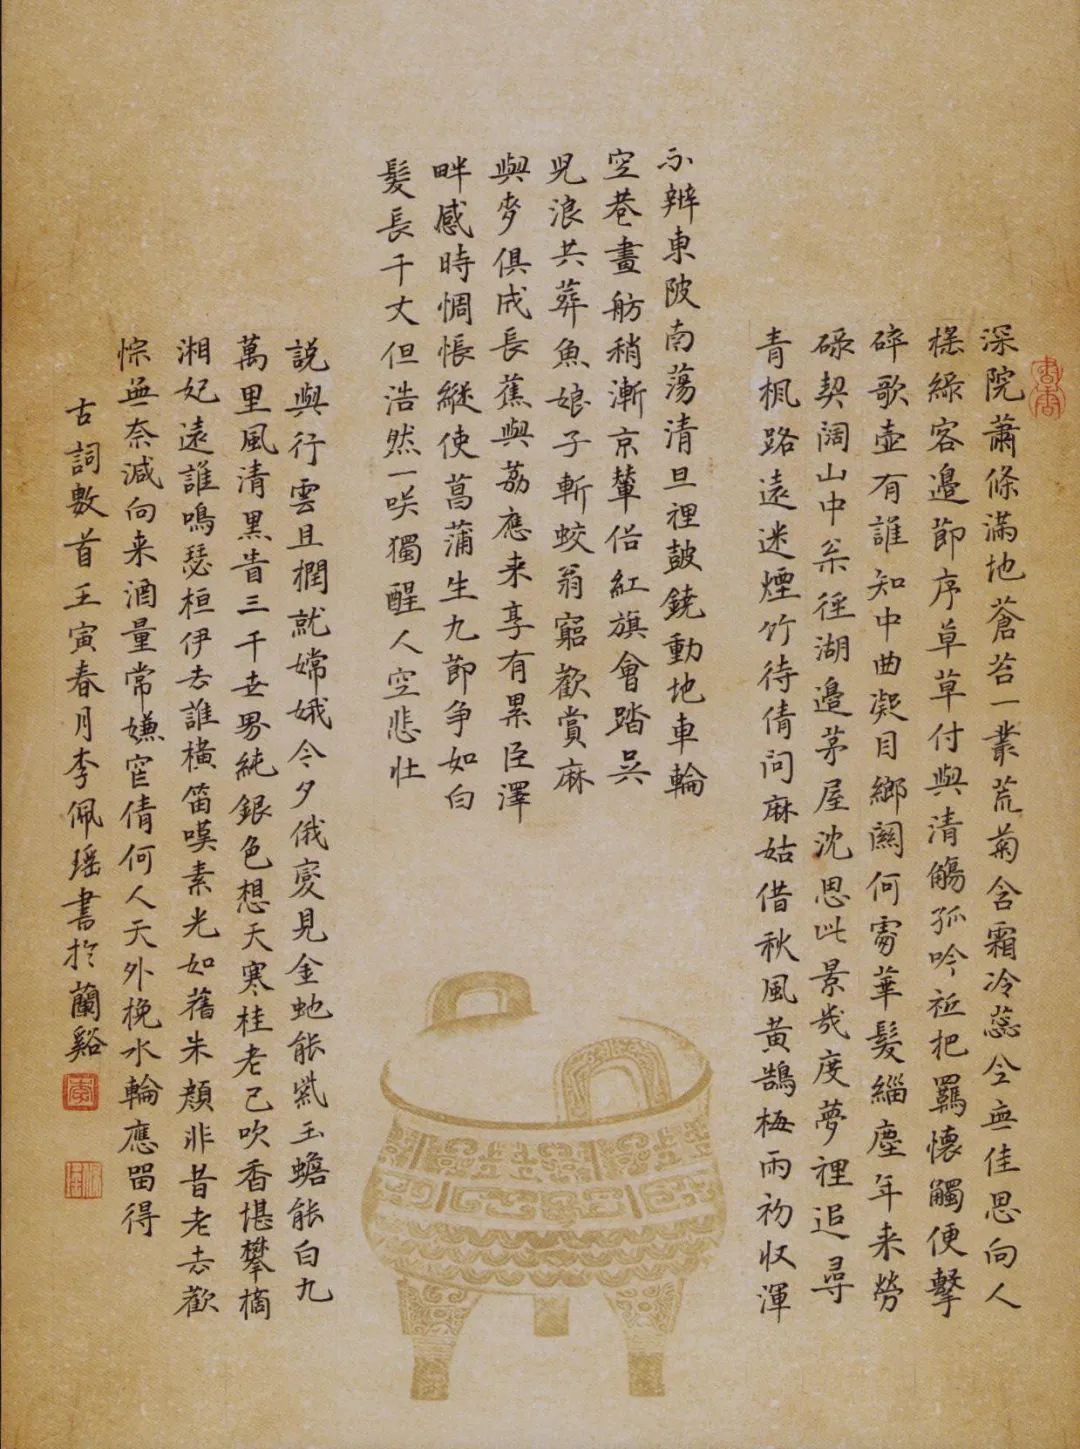 深院蕭條滿地蒼苔一叢荒菊含霜冷蕊全無佳思向人
揺緑客邊節序草草付與清觴孤吟祗把羈懷觸便擊
碎歌壺有誰知中曲凝目鄉關何處華髮緇塵年来勞
碌契闊山中桼徑湖邊茅屋沈思此景幾度夢裡追尋
青楓路遠迷煙竹待倩问麻姑借秋風黄鵠梅雨初收渾
不辨東陂南蕩清旦裡鼓鐃動地車輪
空巷畫舫稍漸京輦俗紅旗會踏吳
兒浪共葬魚娘子斬蛟翁窮歡賞麻
與麥俱成長蕉與荔應来享有累臣澤
畔感時惆悵縱使菖蒲生九節争如白
髮長千丈但浩然一咲獨醒人空悲壮
説與行雲且撋就嫦娥今夕俄變見金虵能紫玉蟾能白九
萬里風清黑眚三千世界純銀色想天寒桂老已吹香堪攀摘
湘妃遠誰鳴瑟桓伊去誰橫笛嘆素光如舊朱顔非昔老去歡
悰無奈減向来酒量常嫌窄倩何人天外挽水輪應留得
古詞數首壬寅春月李佩瑶書於蘭谿